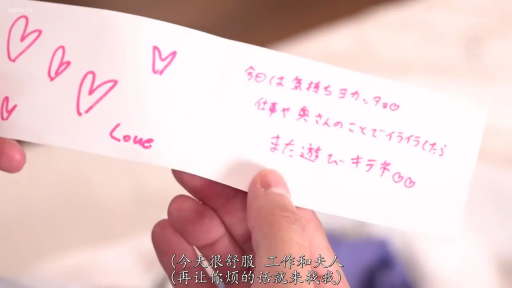 今日は気持ちヨカッタヨ♡
仕事や奥さんのことでイライラしたら
また遊びキテネ♡♡
Love
(今天很舒服 工作和夫人
(再让你烦的话就来找我)